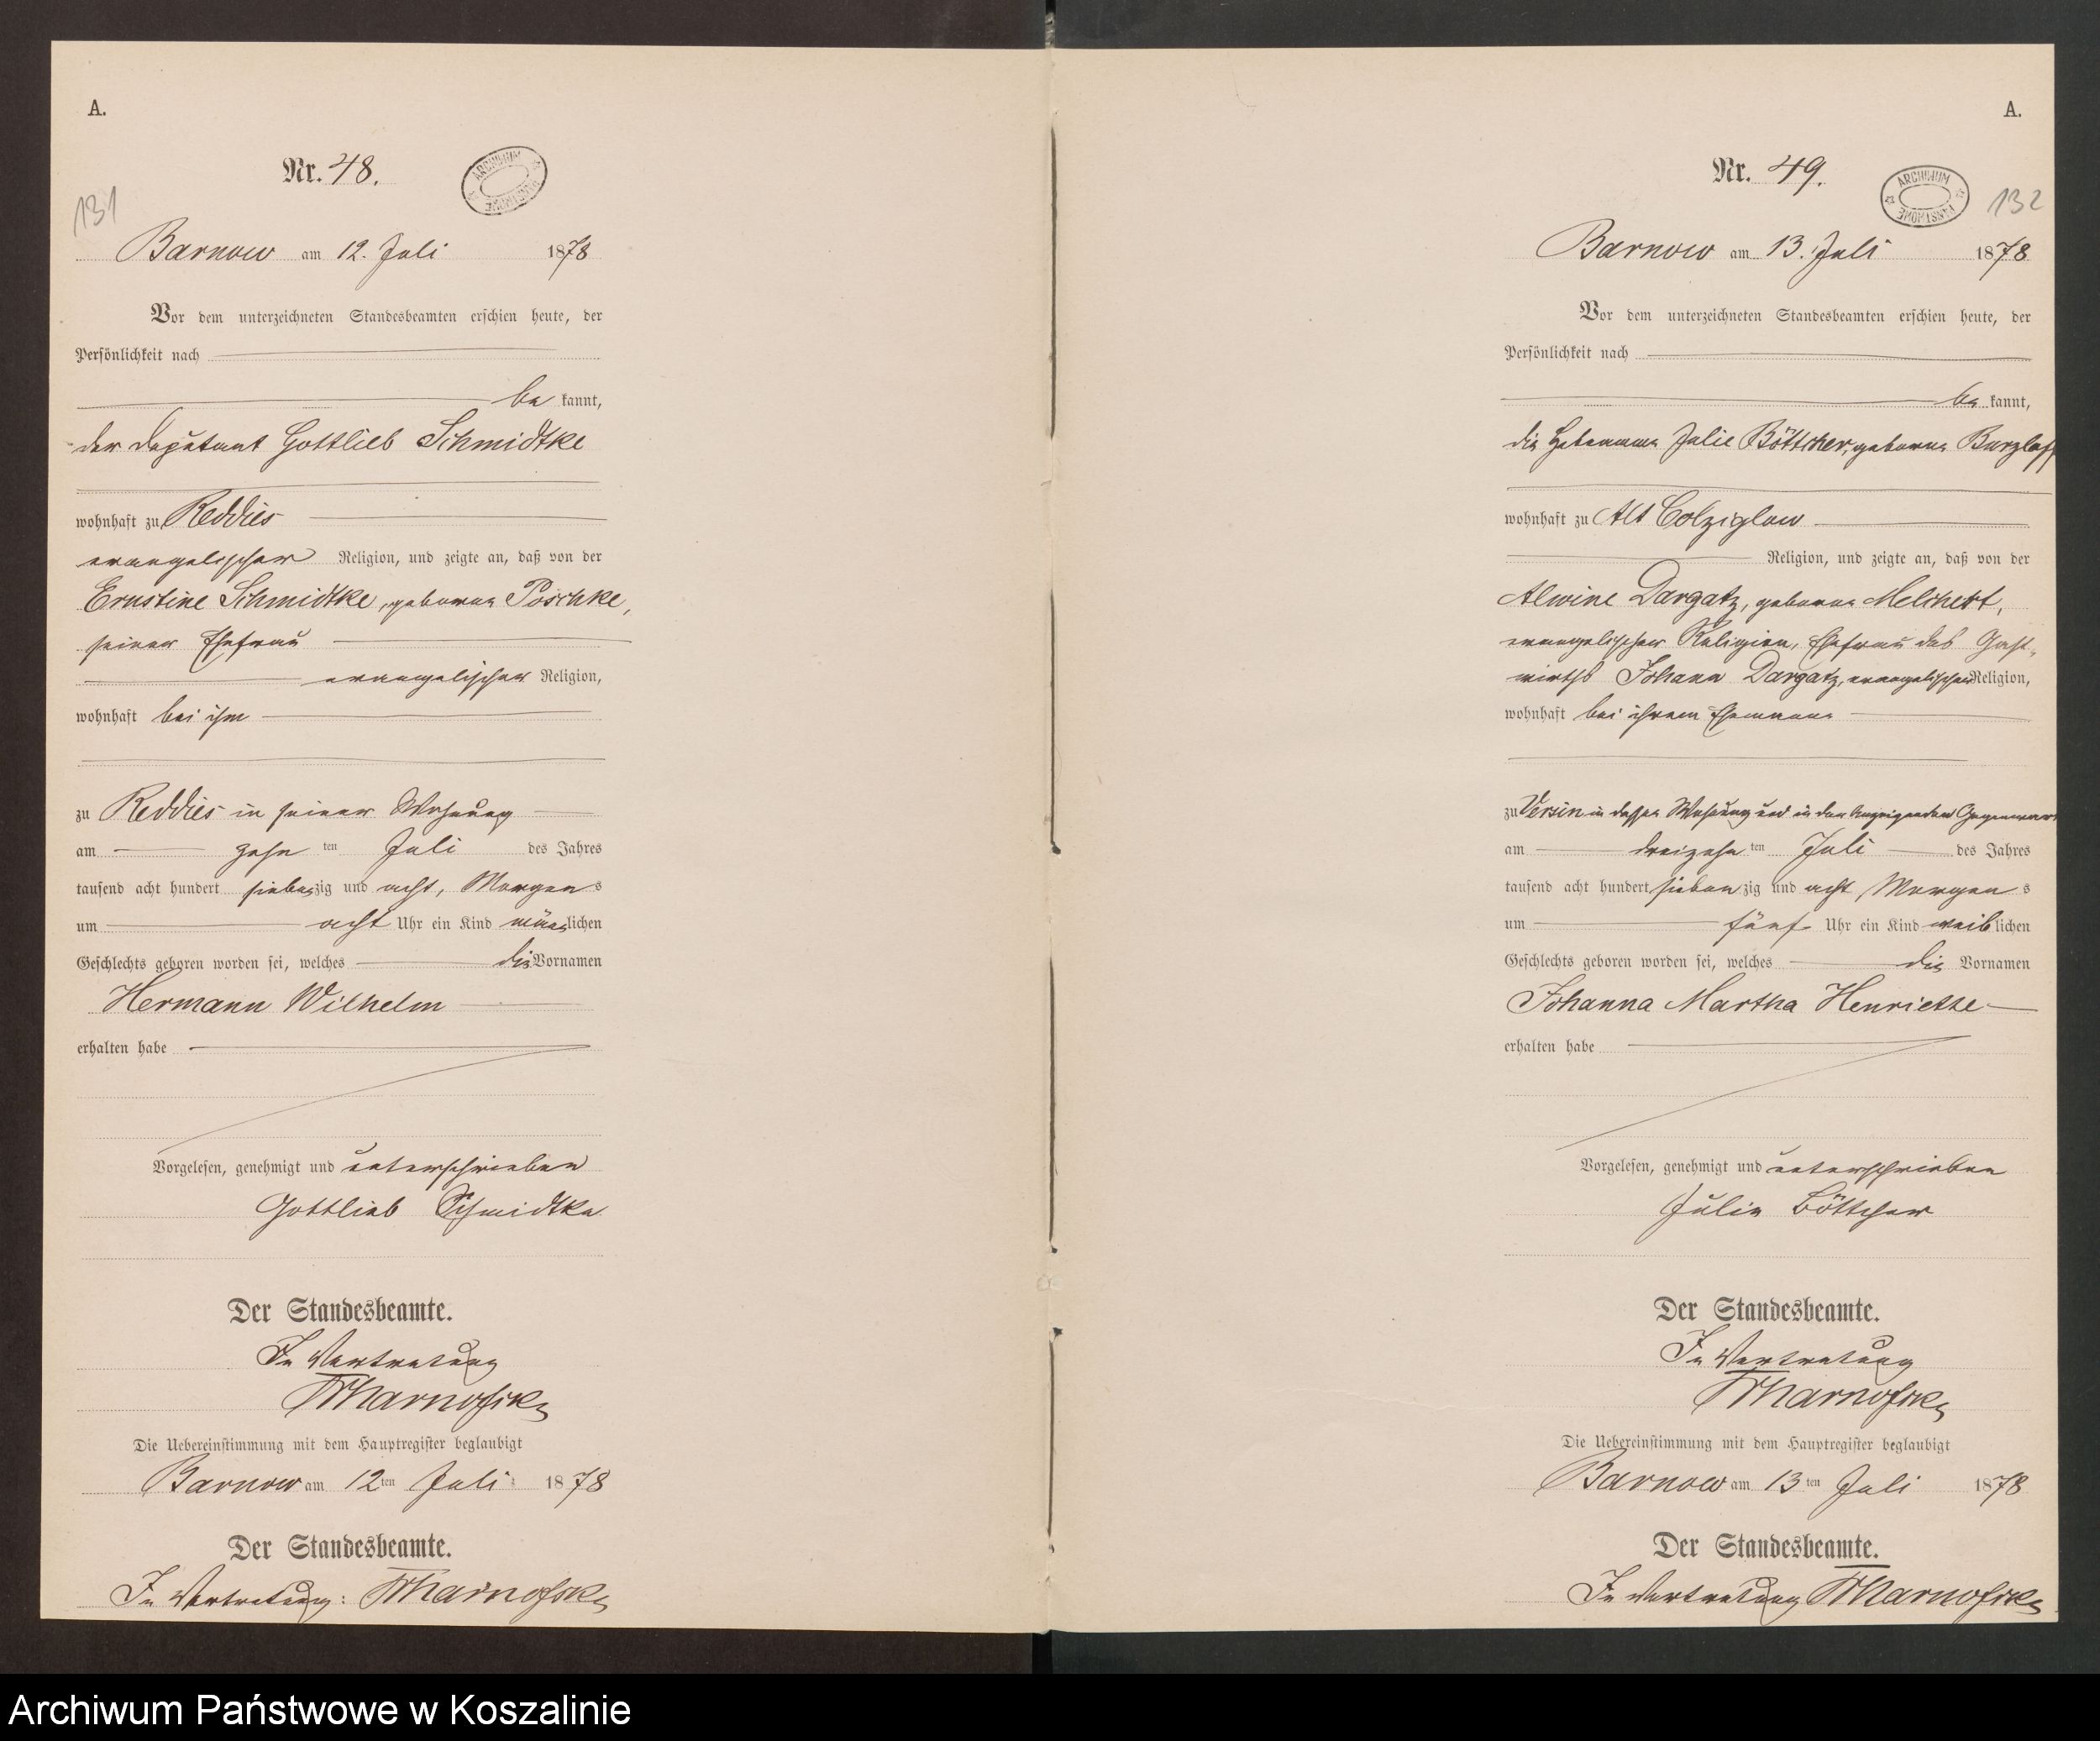 A.
Nr. 48.
131
ARCHIWUM PAŃSTWOWE
Barnow am 12. Juli 1878
Vor dem unterzeichneten Standesbeamten erschien heute, der
Persönlichkeit nach
be kannt,
der Deputant Gottlieb Schmidtke
wohnhaft zu Reddies
evangelischer Religion, und zeigte an, daß von der
Ernstine Schmidtke, geborne Poschke,
seiner Ehefrau
evangelischer Religion,
wohnhaft bei ihm
zu Reddies in seiner Wohnung
am zehn ten Juli des Jahres
tausend acht hundert siebenzig und acht, Morgens
um acht Uhr ein Kind männlichen
Geschlechts geboren worden sei, welches die Vornamen
Hermann Wilhelm
erhalten habe
Vorgelesen, genehmigt und unterschrieben
Gottlieb Schmidtke
Der Standesbeamte.
In Vertretung
Die Uebereinstimmung mit dem Hauptregister beglaubigt
Barnow am 12ten Juli 1878
Der Standesbeamte.
In Vertretung:
A.
Nr. 49.
ARCHIWUM PAŃSTWOWE
132
Barnow am 13. Juli 1878
Vor dem unterzeichneten Standesbeamten erschien heute, der
Persönlichkeit nach
be kannt,
die Hebamme Julie Böttcher, geborne Burzlaff
wohnhaft zu Alt Colziglow
Religion, und zeigte an, daß von der
Alwine Dargatz, geborne Melchert,
evangelischer Religion, Ehefrau des Gast-
wirths Johann Dargatz, evangelischer Religion,
wohnhaft bei ihrem Ehemanne
zu Versin in dessen Wohnung und in der Anzeigenden Gegenwart
am dreizehn ten Juli des Jahres
tausend acht hundert siebenzig und acht, Morgens
um fünf Uhr ein Kind weiblichen
Geschlechts geboren worden sei, welches die Vornamen
Johanna Martha Henriette
erhalten habe
Vorgelesen, genehmigt und unterschrieben
Julie Böttcher
Der Standesbeamte.
In Vertretung
Die Uebereinstimmung mit dem Hauptregister beglaubigt
Barnow am 13ten Juli 1878
Der Standesbeamte.
In Vertretung
Archiwum Państwowe w Koszalinie